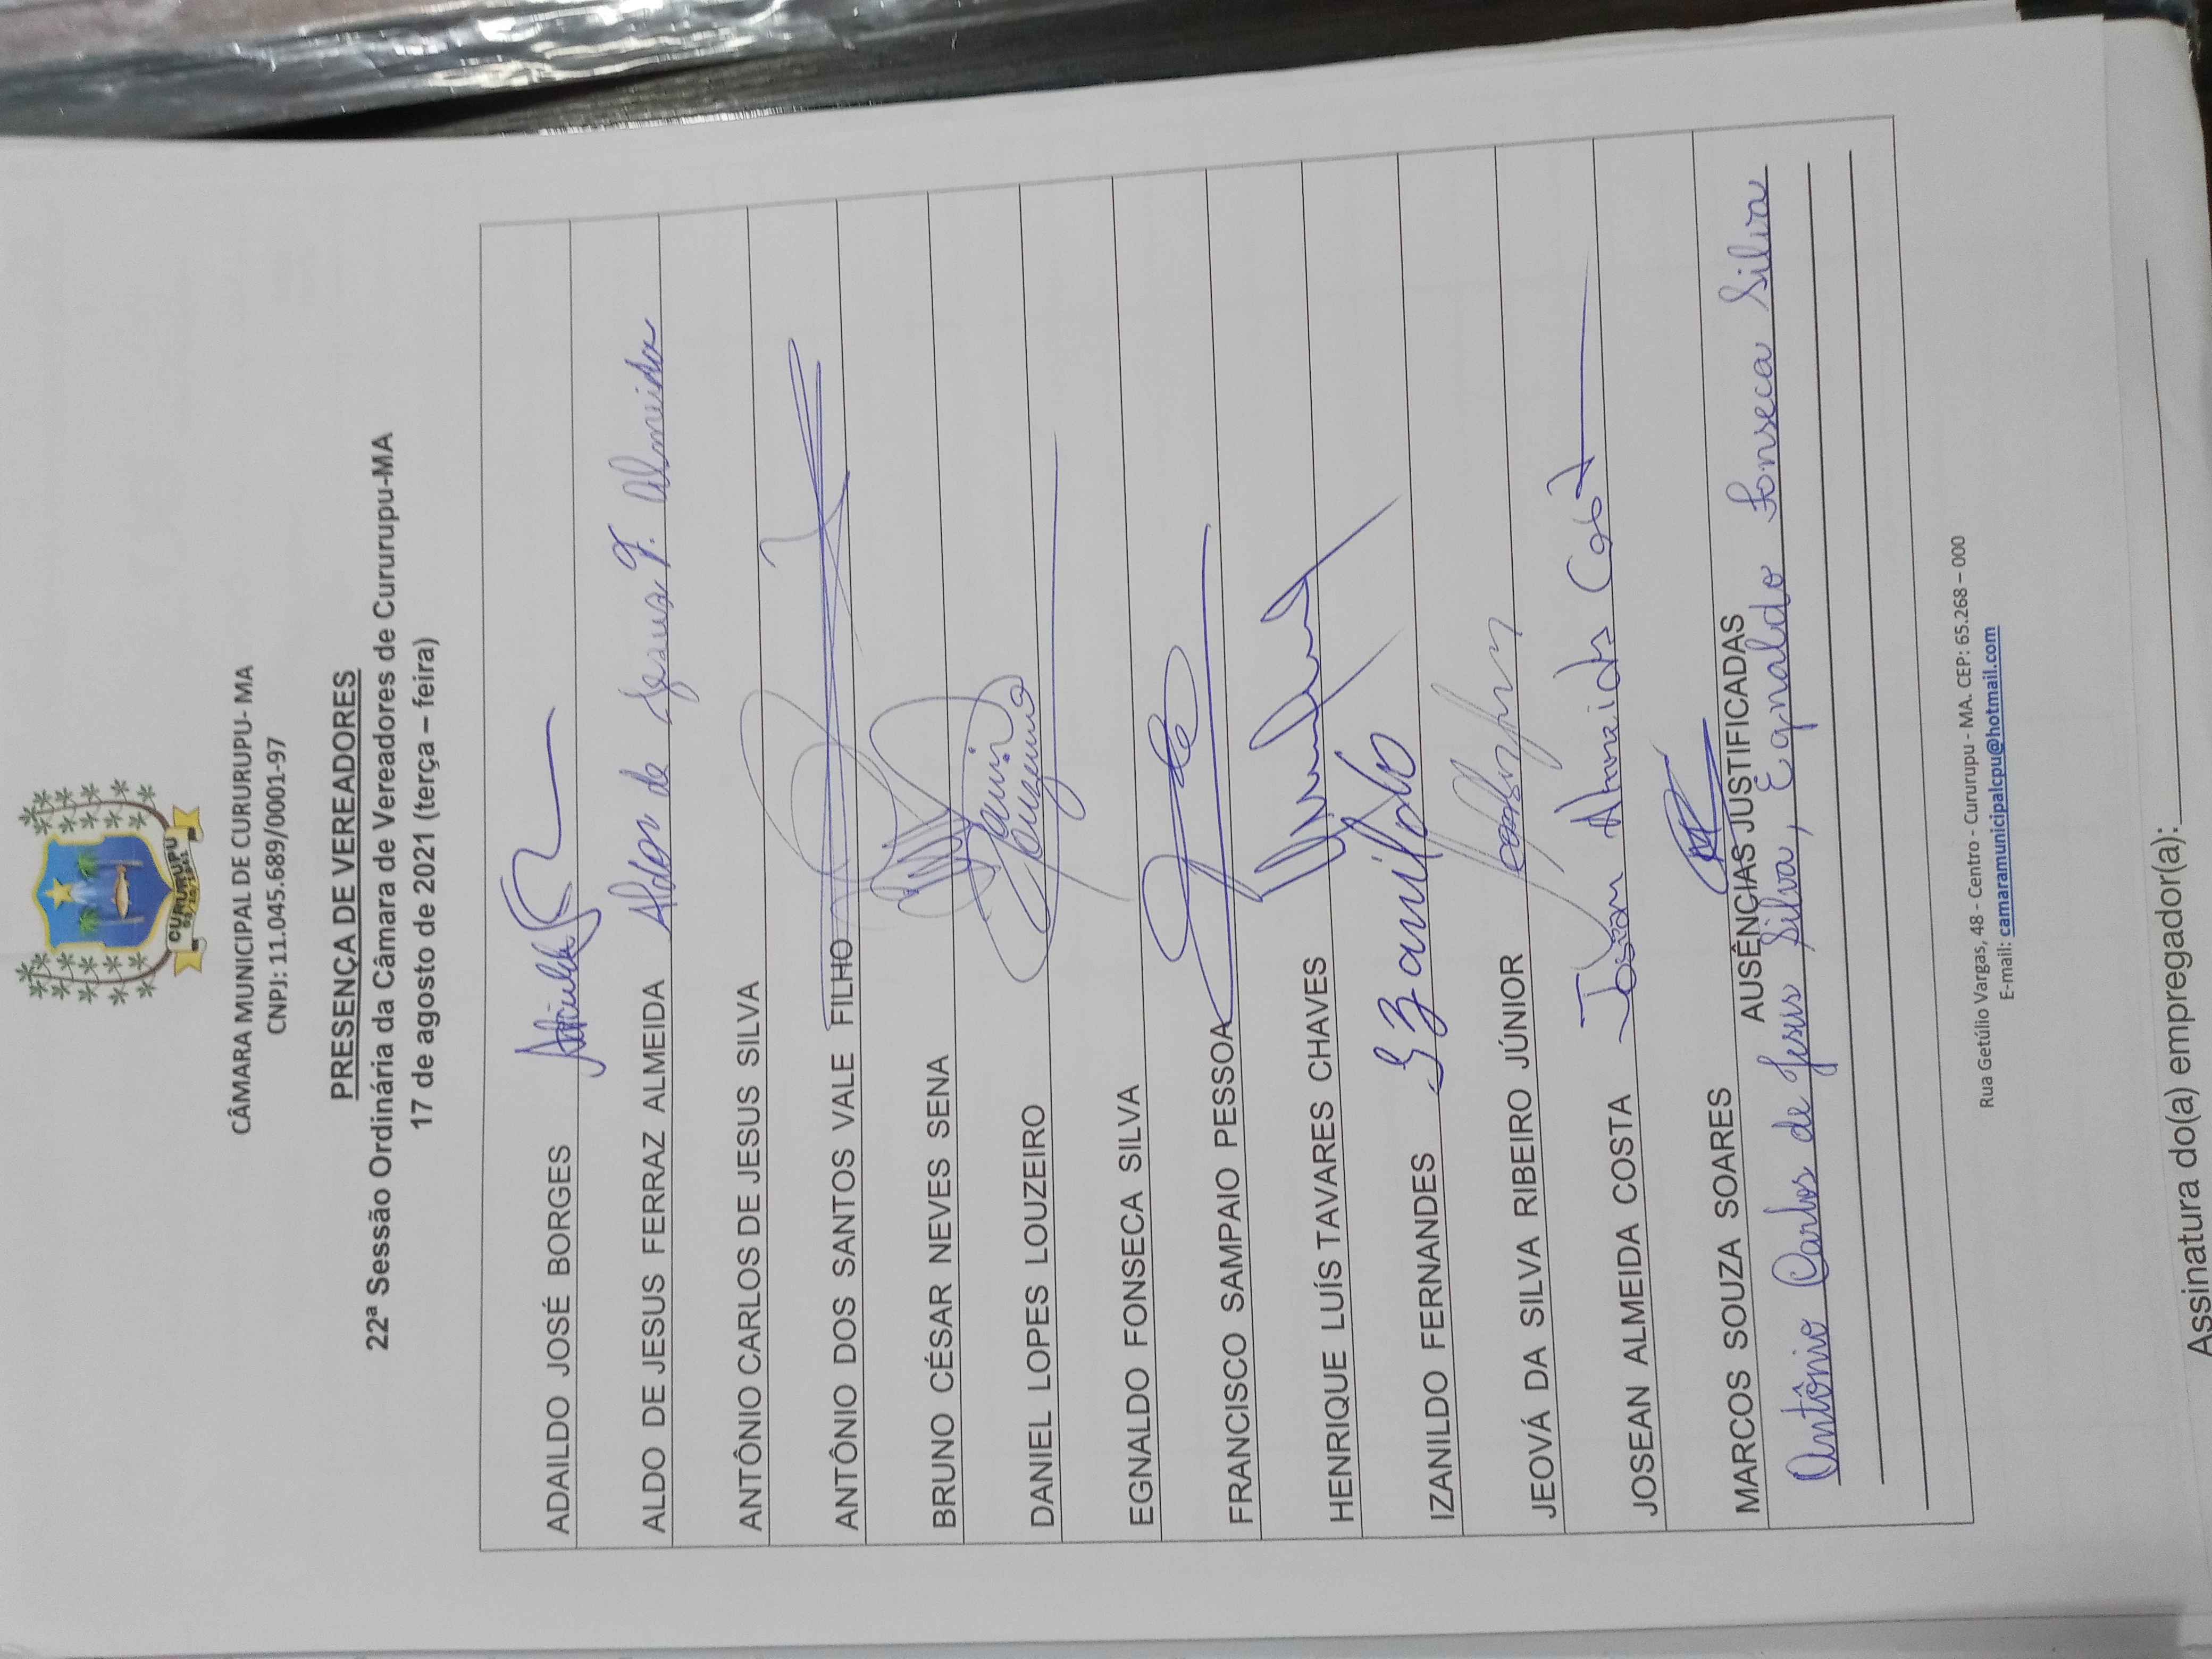 CURURUPU
03/10/1841
CÂMARA MUNICIPAL DE CURURUPU- MA
CNPJ: 11.045.689/0001-97
PRESENÇA DE VEREADORES
22ª Sessão Ordinária da Câmara de Vereadores de Cururupu-MA
17 de agosto de 2021 (terça – feira)
ADAILDO JOSÉ BORGES
ALDO DE JESUS FERRAZ ALMEIDA Aldo de Jesus F. Almeida
ANTÔNIO CARLOS DE JESUS SILVA
ANTÔNIO DOS SANTOS VALE FILHO
BRUNO CÉSAR NEVES SENA
DANIEL LOPES LOUZEIRO Daniel
Louzeiro
EGNALDO FONSECA SILVA
FRANCISCO SAMPAIO PESSOA
HENRIQUE LUÍS TAVARES CHAVES
IZANILDO FERNANDES Izanildo
JEOVÁ DA SILVA RIBEIRO JÚNIOR
JOSEAN ALMEIDA COSTA Josean Almeida Costa
MARCOS SOUZA SOARES
AUSÊNCIAS JUSTIFICADAS
Antônio Carlos de Jesus Silva, Egnaldo Fonseca Silva
Rua Getúlio Vargas, 48 - Centro - Cururupu - MA. CEP: 65.268 – 000
E-mail: camaramunicipalcpu@hotmail.com
Assinatura do(a) empregador(a):